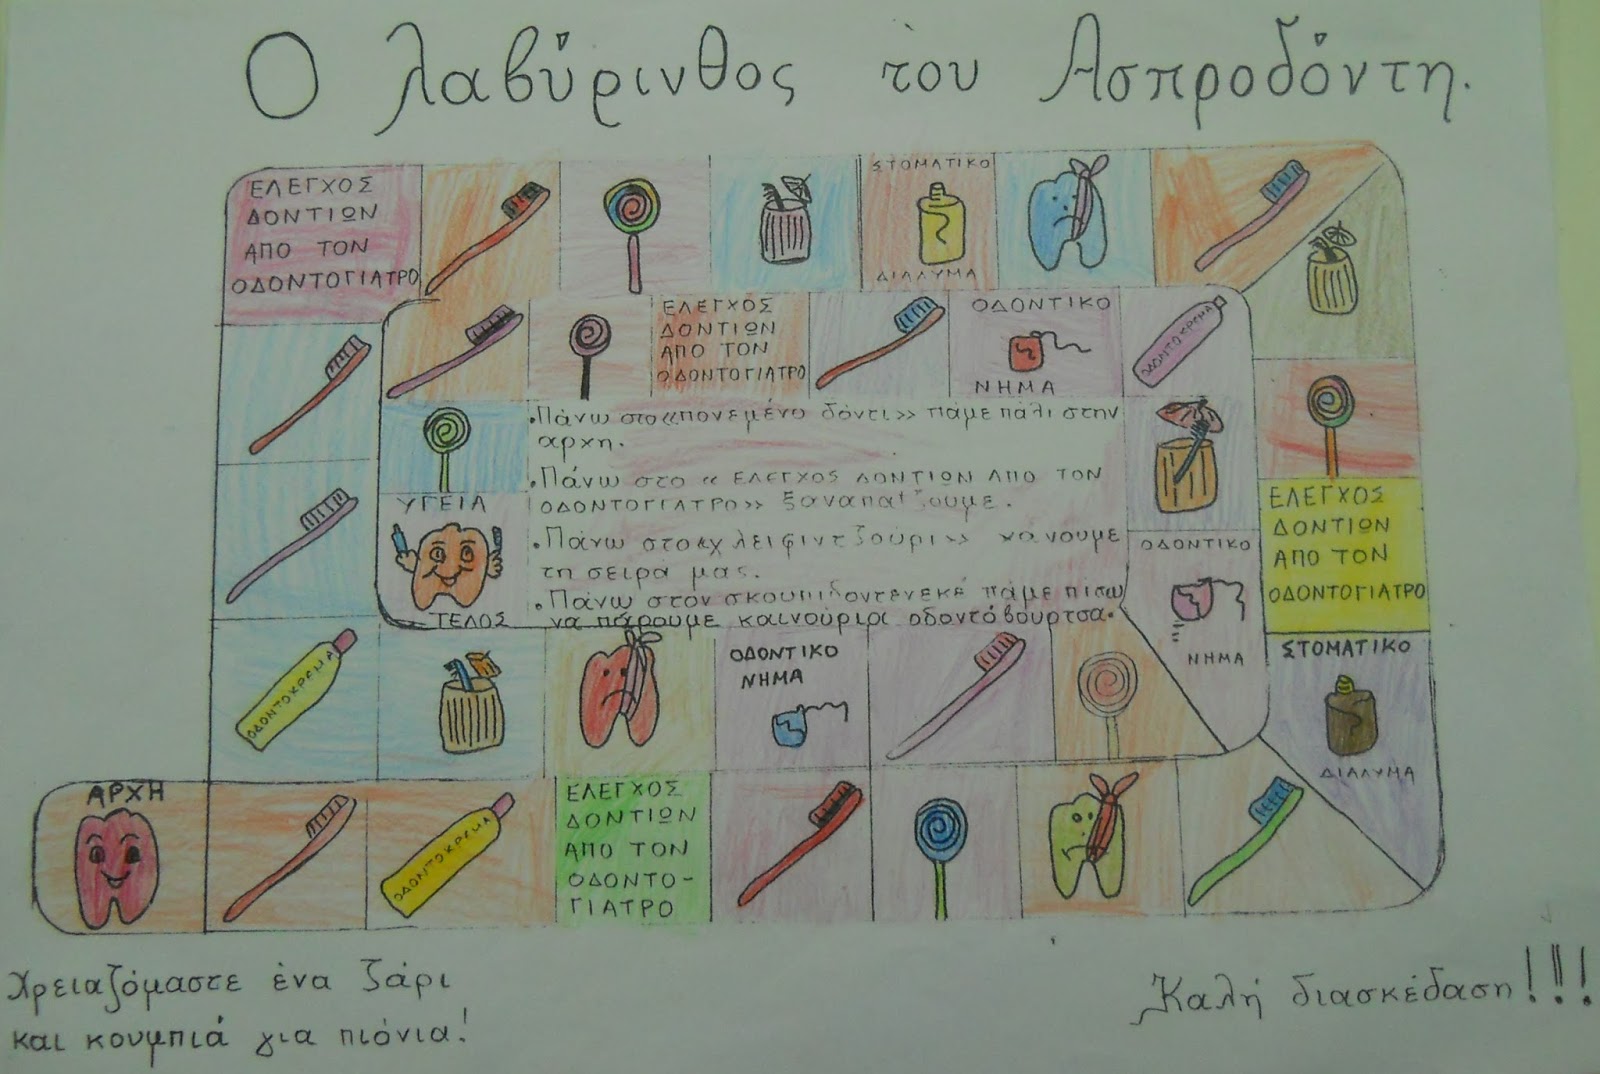 Ο λαβύρινθος του Ασπροδόντη.
ΕΛΕΓΧΟΣ
ΔΟΝΤΙΩΝ
ΑΠΟ ΤΟΝ
ΟΔΟΝΤΟΓΙΑΤΡΟ
ΣΤΟΜΑΤΙΚΟ
ΔΙΑΛΥΜΑ
ΕΛΕΓΧΟΣ
ΔΟΝΤΙΩΝ
ΑΠΟ ΤΟΝ
ΟΔΟΝΤΟΓΙΑΤΡΟ
ΟΔΟΝΤΙΚΟ
ΝΗΜΑ
ΟΔΟΝΤΟΚΡΕΜΑ
•Πάνω στο «πονεμένο δόντι» πάμε πάλι στην
αρχη.
•Πάνω στο « ΕΛΕΓΧΟΣ ΔΟΝΤΙΩΝ ΑΠΟ ΤΟΝ
ΟΔΟΝΤΟΓΙΑΤΡΟ» ξαναπαίζουμε.
•Πάνω στο «γλειφιντζούρι» χάνουμε
τη σειρά μας.
•Πάνω στον σκουπιδοντενεκέ πάμε πίσω
να πάρουμε καινούρια οδοντόβουρτσα.
ΥΓΕΙΑ
ΤΕΛΟΣ
ΟΔΟΝΤΙΚΟ
ΝΗΜΑ
ΕΛΕΓΧΟΣ
ΔΟΝΤΙΩΝ
ΑΠΟ ΤΟΝ
ΟΔΟΝΤΟΓΙΑΤΡΟ
ΣΤΟΜΑΤΙΚΟ
ΔΙΑΛΥΜΑ
ΟΔΟΝΤΟΚΡΕΜΑ
ΟΔΟΝΤΙΚΟ
ΝΗΜΑ
ΑΡΧΗ
ΟΔΟΝΤΟΚΡΕΜΑ
ΕΛΕΓΧΟΣ
ΔΟΝΤΙΩΝ
ΑΠΟ ΤΟΝ
ΟΔΟΝΤΟ-
ΓΙΑΤΡΟ
Χρειαζόμαστε ένα ζάρι
και κουμπιά για πιόνια!
Καλή διασκέδαση!!!